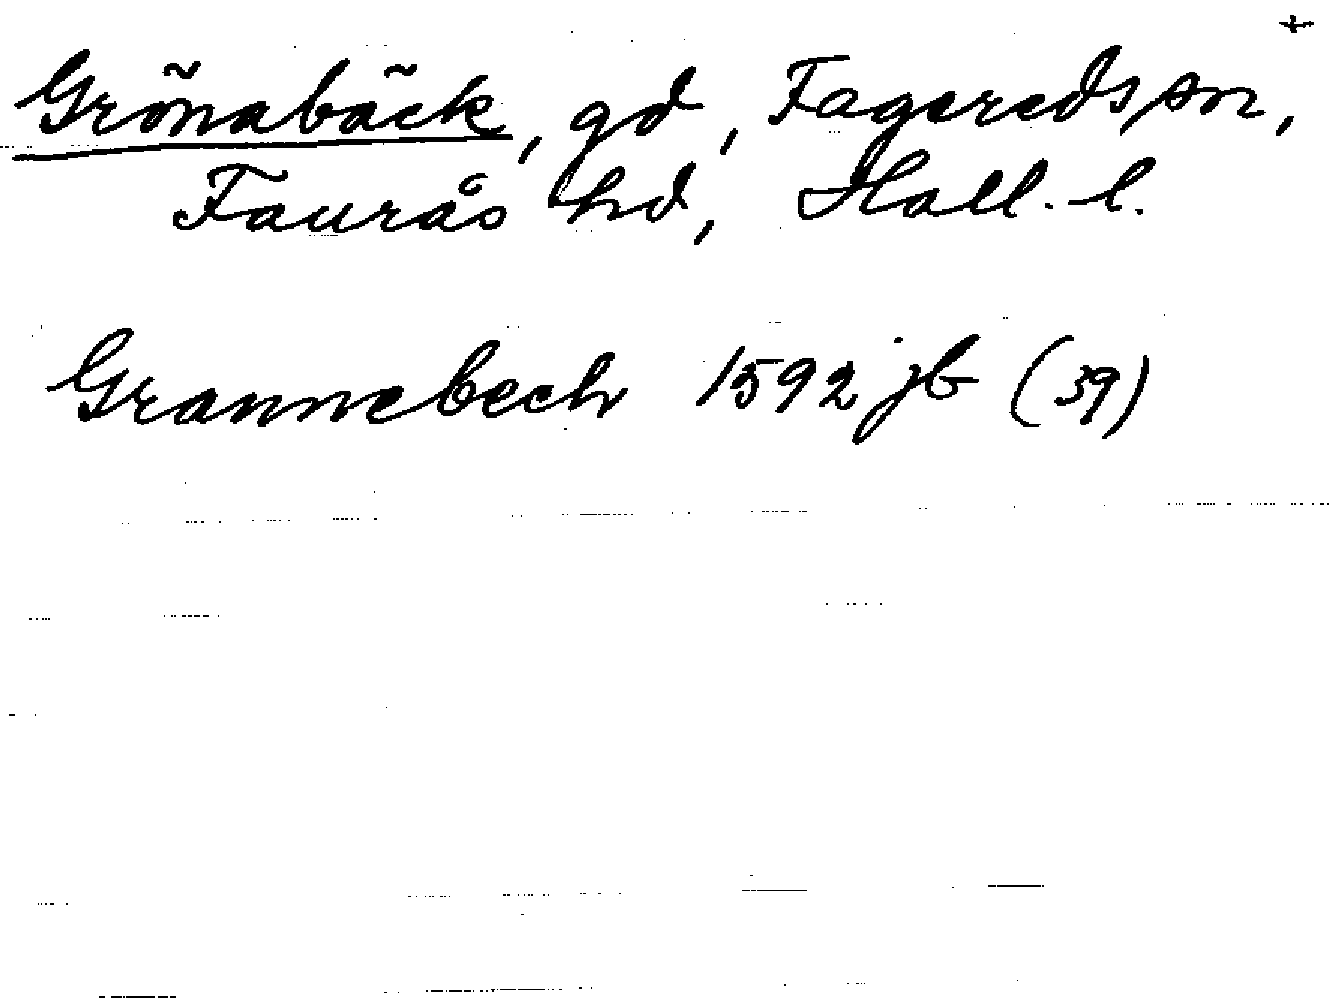 +
Grönabäck, gd, Fagereds sn,
Faurås hd, Hall. l.
Grannebech 1592 jb (39)